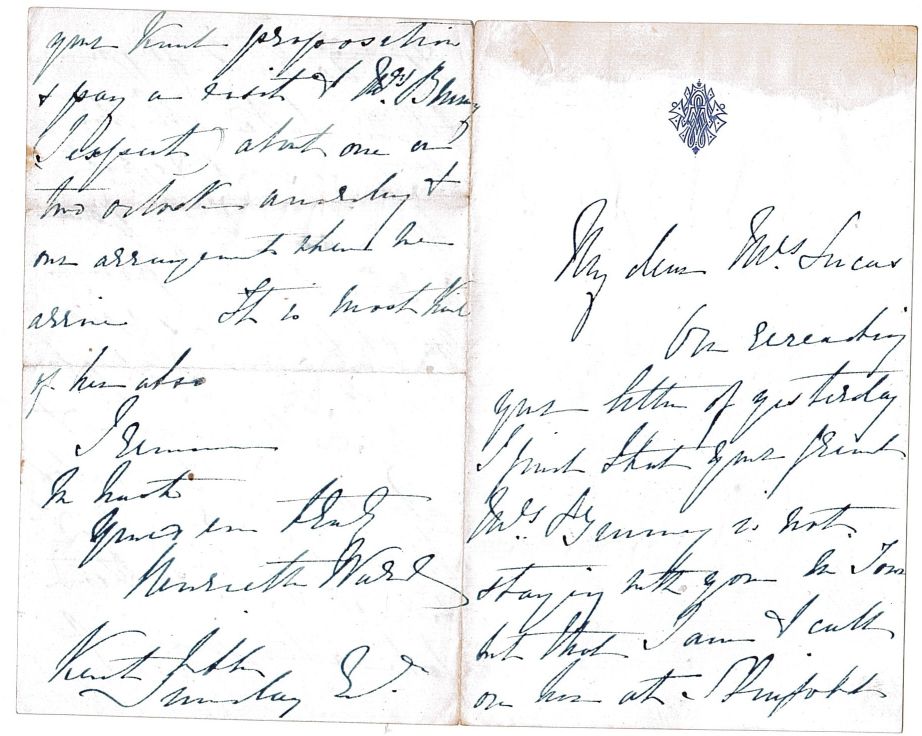 My dear Mrs Lucas
On rereading
your letter of yesterday
I find that your friend
Mrs. is not
staying with you in Town
but that I am to call
on her at
your kind proposition
& pay a visit to Mrs
I expect about one or
two o'clock &
our arrangement when we
arrive It is most kind
of her also
I remain
In haste
Yours ever truly
Henrietta Ward
Kent
Sunday